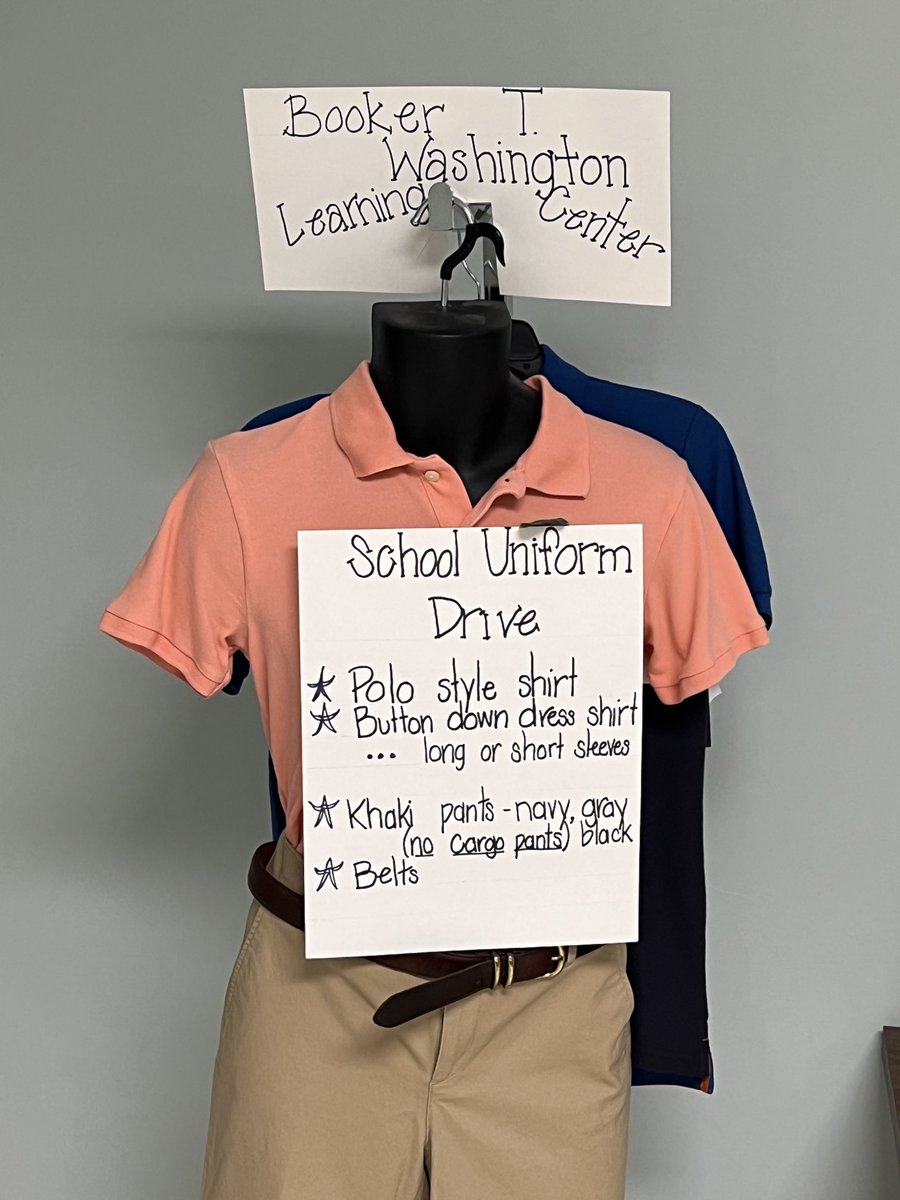 Booker T.
Washington
Learning Center
School Uniform
Drive
☆ Polo style shirt
☆ Button down dress shirt
... long or short sleeves
☆ Khaki pants - navy, gray
(no cargo pants) black
☆ Belts